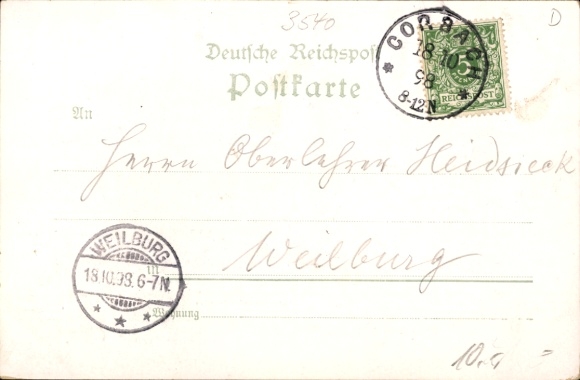 3540
D
Deutsche Reichspost
Postkarte
CORBACH
18.10.
98
8-12N
5
REICHSPOST
An
Herrn Oberlehrer Heidsieck
Weilburg
WEILBURG
18.10.98.6-7N.
Wohnung